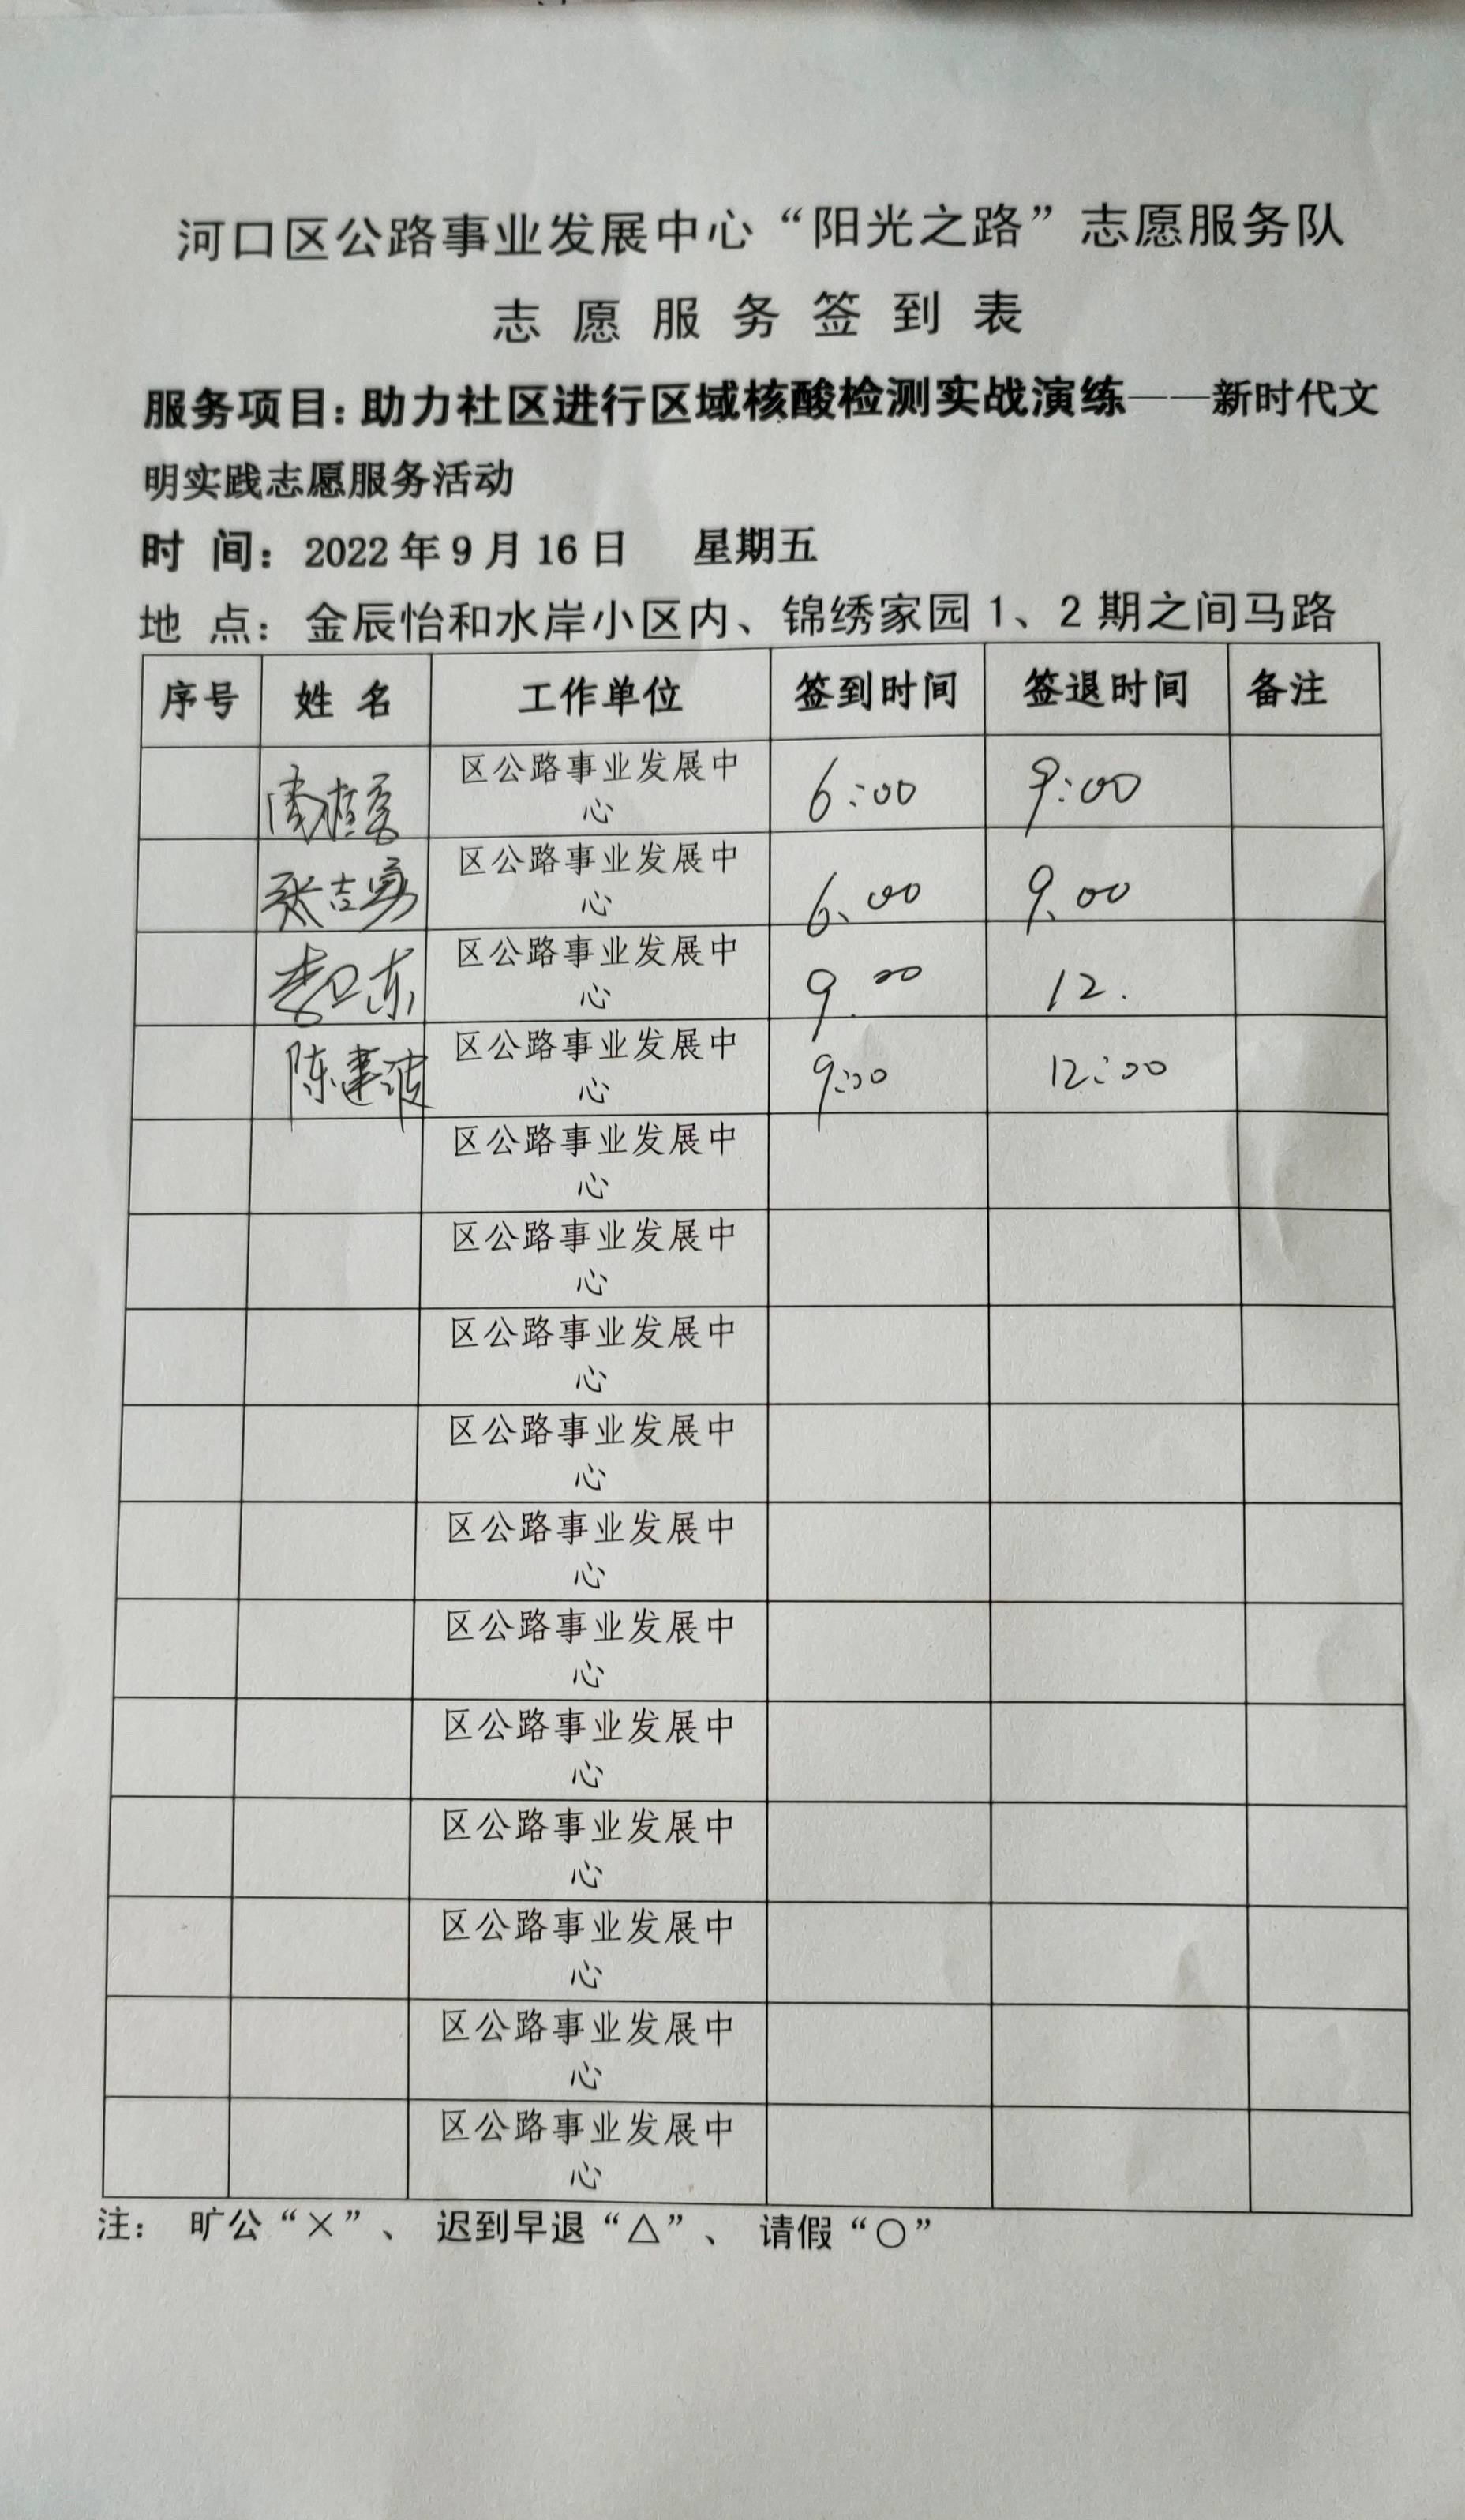 河口区公路事业发展中心“阳光之路”志愿服务队
志愿服务签到表
服务项目：助力社区进行区域核酸检测实战演练——新时代文
明实践志愿服务活动
时 间：2022年9月16日 星期五
地 点：金辰怡和水岸小区内、锦绣家园1、2期之间马路
序号 姓 名 工作单位 签到时间 签退时间 备注
区公路事业发展中
心
6:00 9:00
张吉勇 区公路事业发展中
心
6.00 9.00
李卫东 区公路事业发展中
心
9.00 12.
陈建波 区公路事业发展中
心
9:00 12:00
区公路事业发展中
心
区公路事业发展中
心
区公路事业发展中
心
区公路事业发展中
心
区公路事业发展中
心
区公路事业发展中
心
区公路事业发展中
心
区公路事业发展中
心
区公路事业发展中
心
区公路事业发展中
心
区公路事业发展中
心
注： 旷公“×”、 迟到早退“△”、 请假“○”